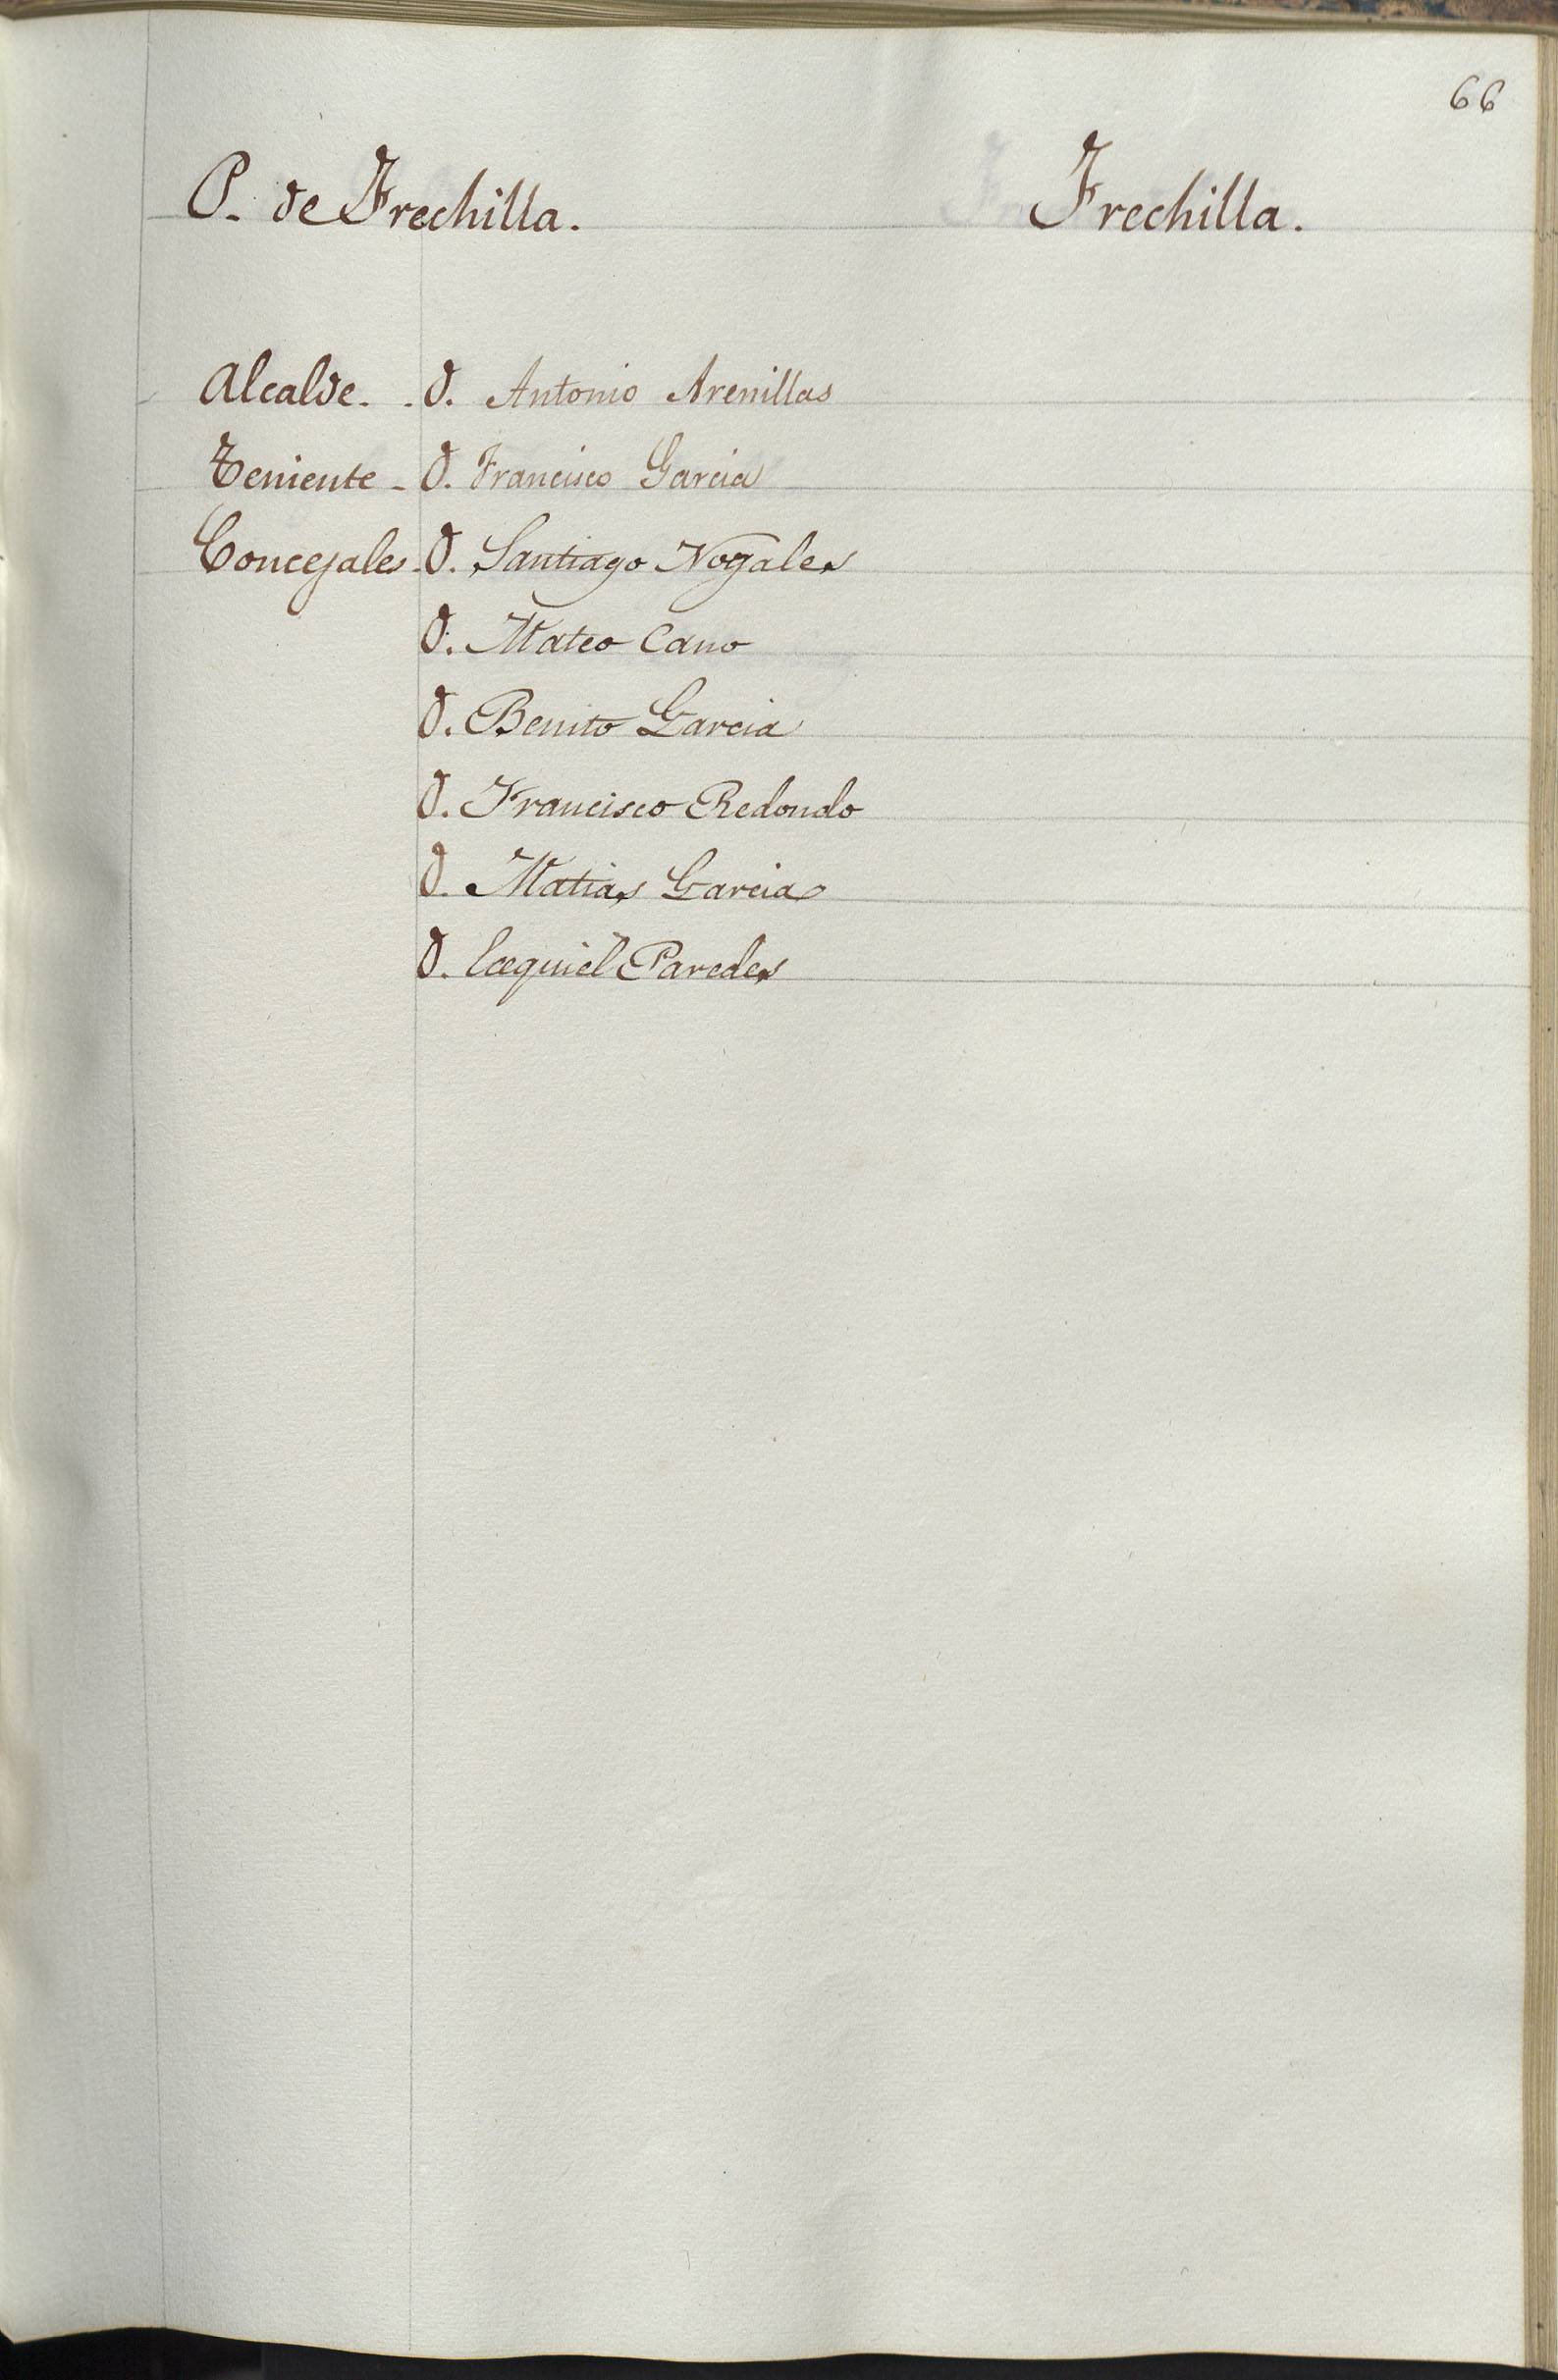 66
P. de Frechilla. Frechilla.
Alcalde - D. Antonio Arenillas
Teniente - D. Francisco Garcia
Concejales - D. Santiago Nogales
D. Mateo Cano
D. Benito Garcia
D. Francisco Redondo
D. Matias Garcia
D. Ecequiel Paredes